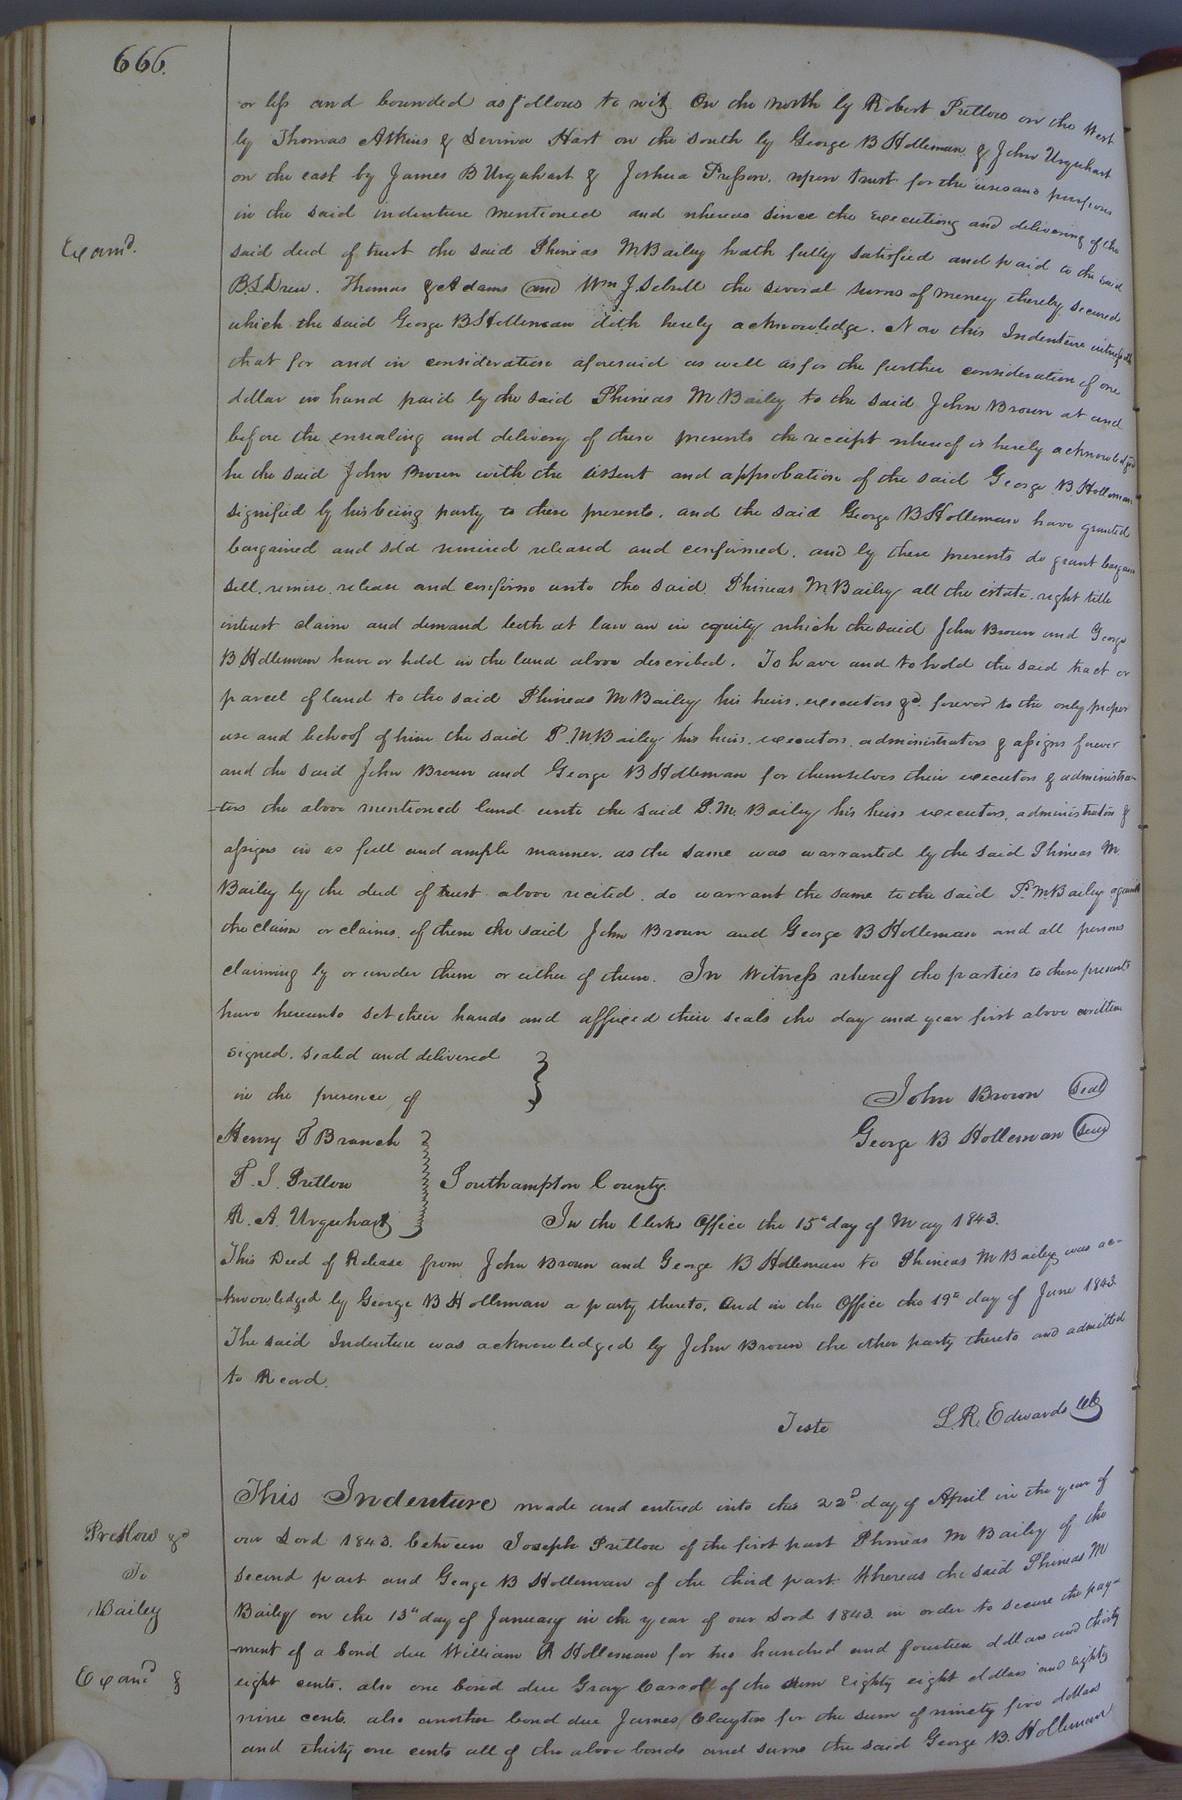 666.
or less and bounded as follows to wit On the north by Robert Pretlow on the West
by Thomas Atkins & Hart on the south by George B Holleman & John Urquhart
on the east by James B Urquhart & Joshua Presson. upon trust for the uses and purposes
in the said indenture mentioned and whereas since the executing and delivering of the
Examd.
said deed of trust the said Phineas M Bailey hath fully satisfied and paid to the said
B. L. Drew. Thomas Adams and Wm J. Sebrell the several sums of money thereby secured
which the said George B Holleman doth hereby acknowledge. Now this Indenture witnesseth
that for and in consideration aforesaid as well as for the further consideration of one
dollar in hand paid by the said Phineas M Bailey to the said John Brown at and
before the ensealing and delivery of these presents the receipt whereof is hereby acknowledged
he the said John Brown with the assent and approbation of the said George B Holleman
signified by his being party to these presents. and the said George B Holleman have granted
bargained and sold remised released and confirmed. and by these presents do grant bargain
sell. remise. release and confirm unto the said Phineas M Bailey all the estate. right title
interest claim and demand both at law an in equity which the said John Brown and George
B Holleman have or hold in the land above described. To have and to hold the said tract or
parcel of land to the said Phineas M Bailey his heirs. executors &c. forever to the only proper
use and behoof of him the said P. M. Bailey his heirs. executors. administrators & assigns forever
and the said John Brown and George B Holleman for themselves their executors & administra-
-tors the above mentioned land unto the said P. M. Bailey his heirs executors, administrators &
assigns in as full and ample manner. as the same was warranted by the said Phineas M
Bailey by the deed of trust above recited. do warrant the same to the said P. M. Bailey against
the claim or claims. of them the said John Brown and George B Holleman and all persons
claiming by or under them or either of them. In Witness whereof the parties to these presents
have hereunto set their hands and affixed their seals the day and year first above written
signed. sealed and delivered
in the presence of
John Brown Seal
Henry T Branch
George B Holleman Seal
T. J. Pretlow
Southampton County.
R. A. Urquhart
In the Clerks Office the 15th day of May 1843.
This Deed of Release from John Brown and George B Holleman to Phineas M Bailey was ac-
-knowledged by George B Holleman a party thereto. And in the Office the 19th day of June 1843.
The said Indenture was acknowledged by John Brown the other party thereto and admitted
to Record.
Teste L. R. Edwards Clk
This Indenture made and entered into this 22d day of April in the year of
Pretlow &c
To
Bailey
Examd &
our Lord 1843. between Joseph Pretlow of the first part Phineas M Bailey of the
second part and George B Holleman of the third part. Whereas the said Phineas M
Bailey on the 13th day of January in the year of our Lord 1843. in order to secure the pay-
-ment of a bond due William Holleman for two hundred and fourteen dollars and thirty
eight cents. also one bond due Gray Carroll of the sum Eighty eight dollars and eighty
nine cents. also another bond due James Clayton for the sum of ninety five dollars
and thirty one cents all of the above bonds and sums the said George B. Holleman